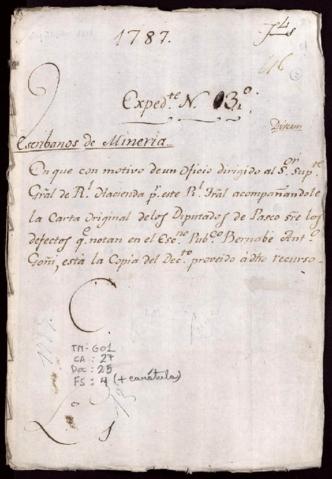 1787.
Exped.te N. 13.
Escribanos de Mineria
En que con motivo de un Oficio dirigido al S.or Sup.te
Gral de R.l Hacienda p.r este R.l Tral acompañandole
la Carta Original de los Diputados de Pasco sre los
defectos q.e notan en el Esc.no Pub.co Bernabé Ant.o
Goñi, está la Copia del Dec.to proveido a dho recurso.
TM-GO1
CA: 27
Doc: 25
FS: 4 (+ carátula)